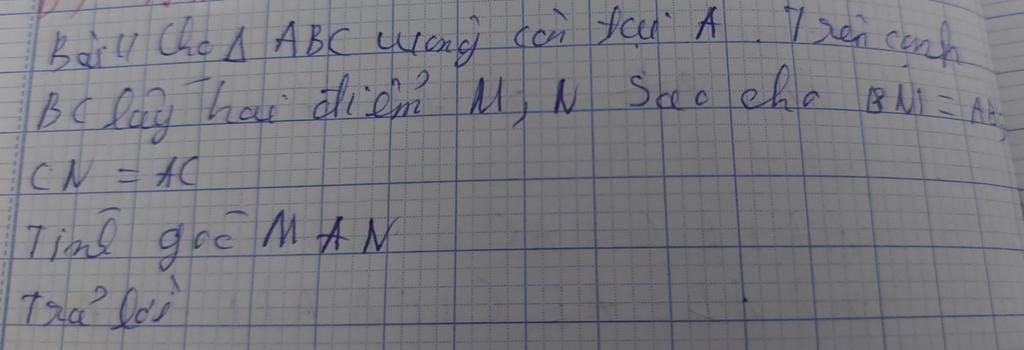 Bài 4 Cho Δ ABC vuông cân tại A. Trên cạnh
BC lấy hai điểm M, N Sao cho BM = AB,
CN = AC
Tính góc MAN
Trả lời